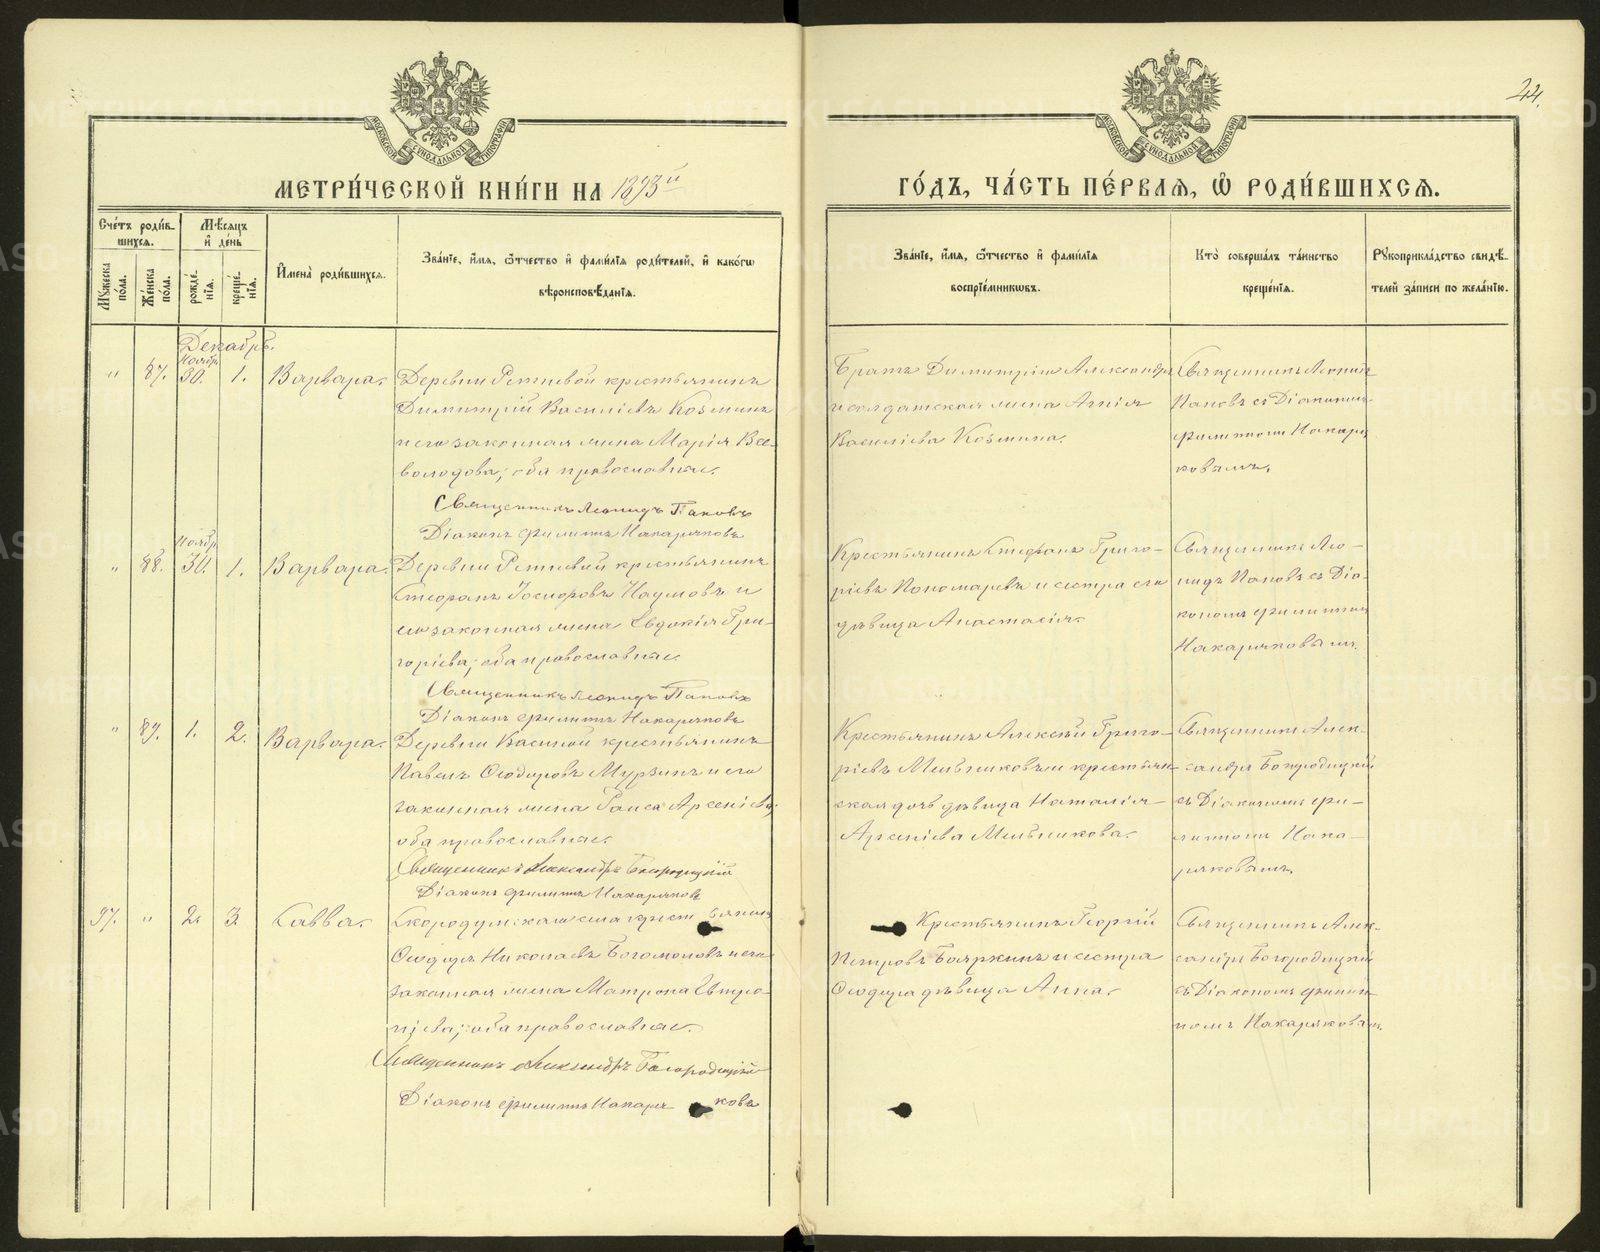 МЕТРИ́ЧЕСКОЙ КНИ́ГИ НА 1893й
Сче́тъ роди́вшихся.
Мѣ́сяцъ и де́нь
Му́жеска по́ла.
Же́нска по́ла.
рожде́нїя.
креще́нїя.
И́мена роди́вшихся.
Зва́нїе, и́мя, ѻ́тчество и фами́лїя роди́телей, и како́гѡ
вѣроисповѣ́данїя.
Декабрь.
" 87. Ноябр. 30. 1. Варвара.
Деревни Ретневой крестьянинъ
Димитрій Василіевъ Козминъ
и его законная жена Марія Все-
володова; оба православные.
Священникъ Леонидъ Паповъ
Діаконъ Филиппъ Накаряковъ
" 88. Ноябр. 30. 1. Варвара.
Деревни Ретневой крестьянинъ
Стефанъ Наумовъ и
его законная жена Евдокія Гри-
горіева; оба православные.
Священникъ Леонидъ Паповъ
Діаконъ Филиппъ Накаряковъ
" 89. 1. 2. Варвара.
Деревни крестьянинъ
Павелъ Ѳеодоровъ Мурзинъ и его
законная жена Раиса Арсеніева;
оба православные.
Священникъ Александръ Богородицкій
Діаконъ Филиппъ Накаряковъ
97. " 2. 3. Савва.
Скородумскаго села крестьянинъ
Ѳеодоръ Николаевъ Богомоловъ и его
законная жена Матрона Евтро-
піева; оба православные.
Священникъ Александръ Богородицкій
Діаконъ Филиппъ Накаряковъ
44.
ГО́ДЪ, ЧА́СТЬ ПЕ́РВАЯ, Ѽ РОДИ́ВШИХСЯ.
Зва́нїе, и́мя, ѻ́тчество и фами́лїя
воспрїе́мникѡвъ.
Кто̀ соверша́лъ та́инство
креще́нїя.
Рукоприкла́дство свидѣ́-
телей за́писи по жела́нїю.
Братъ Димитрія Александръ
и солдатская жена Агнія
Василіева Козмина.
Священникъ Леонидъ
Паповъ съ Діакономъ
Филиппомъ Накаря-
ковымъ.
Крестьянинъ Стефанъ Григо-
ріевъ Пономаревъ и сестра его
дѣвица Анастасія.
Священникъ Лео-
нидъ Паповъ съ Діа-
кономъ Филиппомъ
Накаряковымъ.
Крестьянинъ Алексѣй Григо-
ріевъ Мельниковъ и крестьян-
ская дочь дѣвица Наталія
Арсеніева Мельникова.
Священникъ Алек-
сандръ Богородицкій
съ Діакономъ Фи-
липпомъ Нака-
ряковымъ.
Крестьянинъ Георгій
Петровъ Бояркинъ и сестра
Ѳеодора дѣвица Анна.
Священникъ Алек-
сандръ Богородицкій
съ Діакономъ Филип-
помъ Накаряковымъ.